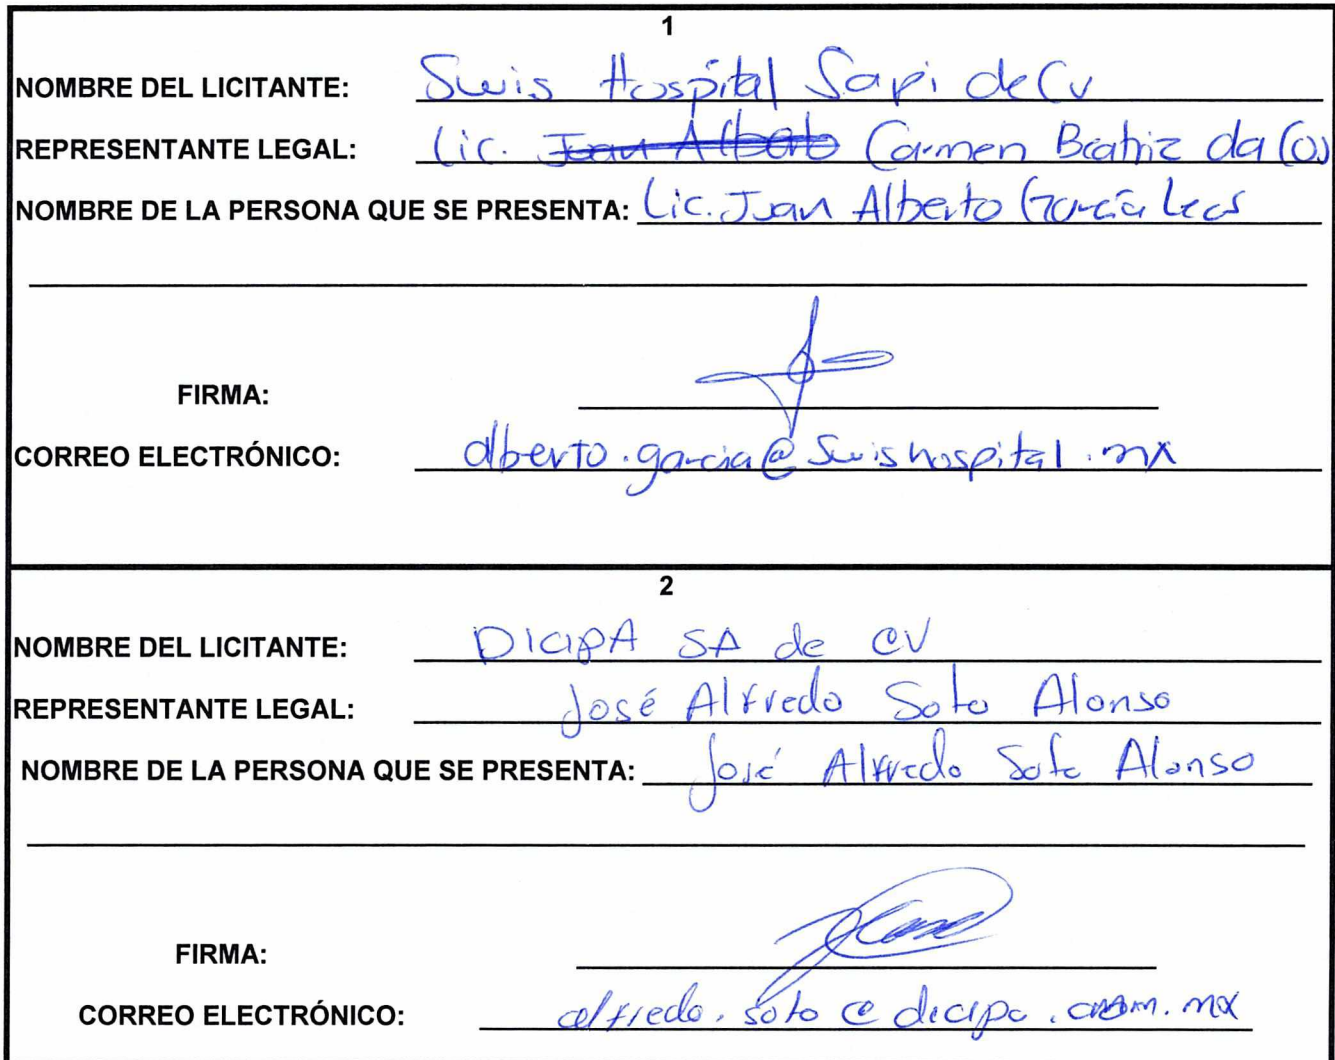 1
NOMBRE DEL LICITANTE: Swis Hospital Sapi de Cv
REPRESENTANTE LEGAL: Lic. Juan Alberto Carmen Beatriz da
NOMBRE DE LA PERSONA QUE SE PRESENTA: Lic. Juan Alberto García
FIRMA:
CORREO ELECTRÓNICO: alberto.garcia@Swishospital.mx
2
NOMBRE DEL LICITANTE: DICIPA SA de CV
REPRESENTANTE LEGAL: José Alfredo Soto Alonso
NOMBRE DE LA PERSONA QUE SE PRESENTA: José Alfredo Soto Alonso
FIRMA:
CORREO ELECTRÓNICO: alfredo.soto@dicipa.com.mx